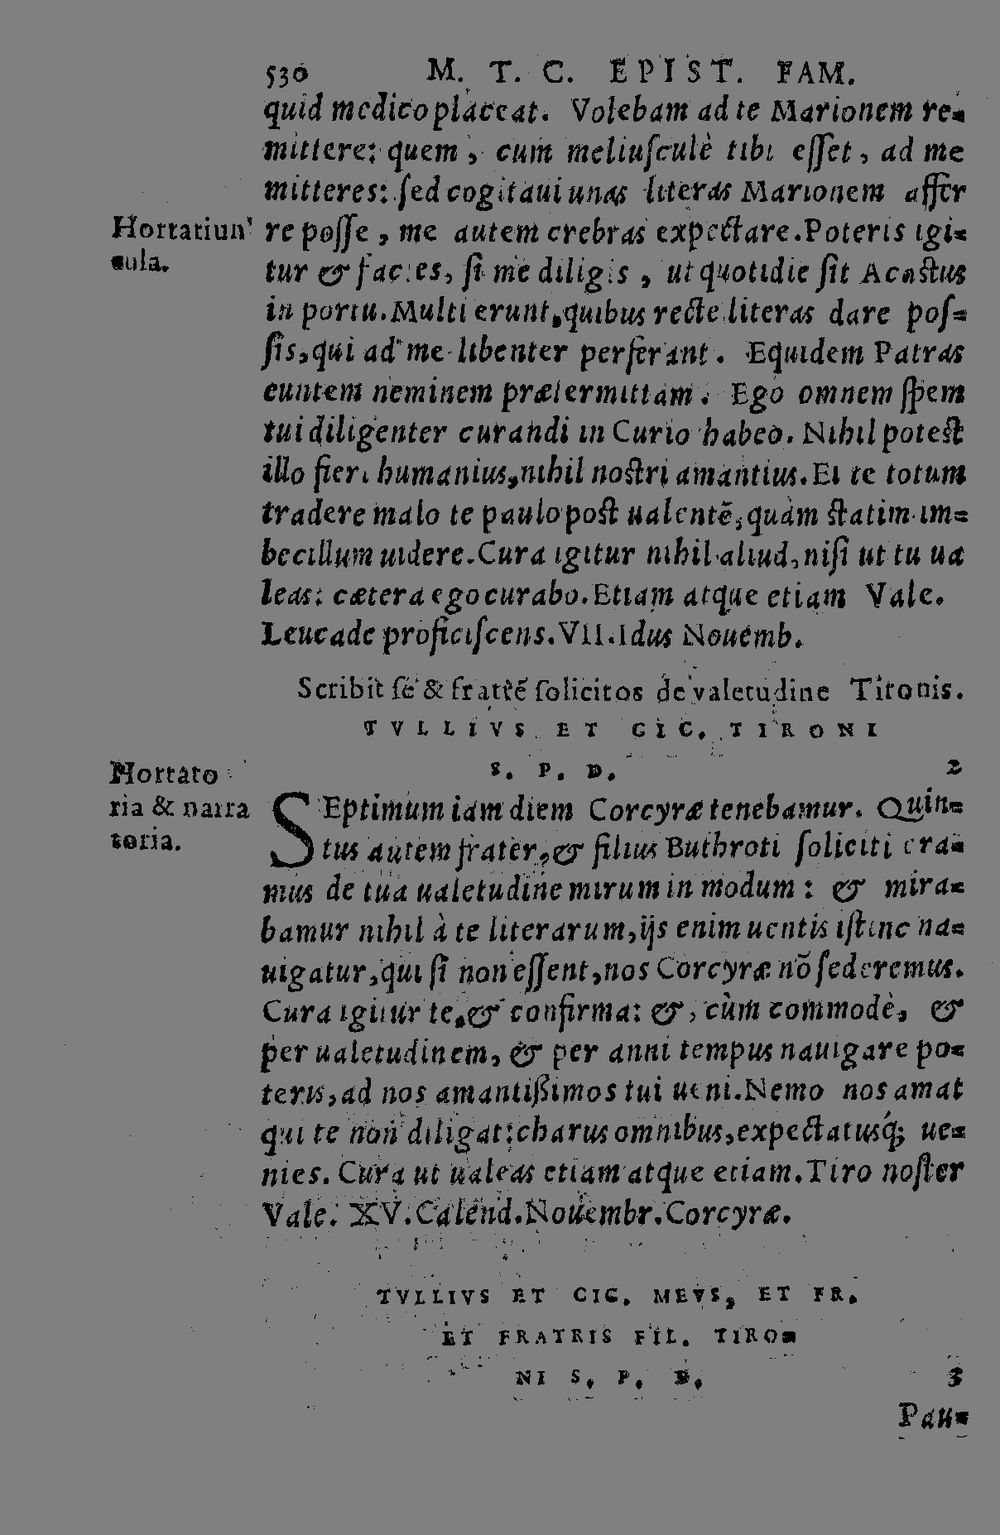 530 M. T. C. EPIST. FAM.
quid medico placeat. Volebam ad te Marionem re-
mittere: quem, cum meliusculè tibi esset, ad me
mitteres: sed cogitaui unas literas Marionem affer
Hortatiun'
cula.
re posse, me autem crebras expectare. Poteris igi-
tur & facies, si me diligis, ut quotidie sit Acastus
in portu. Multi erunt, quibus recte literas dare pos-
sis, qui ad me libenter perferant. Equidem Patras
euntem neminem prætermittam. Ego omnem spem
tui diligenter curandi in Curio habeo. Nihil potest
illo fieri humanius, nihil nostri amantius. Ei te totum
tradere malo te paulo post ualentē, quàm statim im-
becillum uidere. Cura igitur nihil aliud, nisi ut tu ua
leas: cætera ego curabo. Etiam atque etiam Vale.
Leucade proficiscens. VII. Idus Nouemb.
Scribit se & fratrē solicitos de valetudine Tironis.
TVLLIVS ET CIC. TIRONI
S. P. D. 2
Hortato
ria & narra
toria.
SEptimum iam diem Corcyræ tenebamur. Quin-
tus autem frater, & filius Buthroti soliciti era-
mus de tua ualetudine mirum in modum: & mira-
bamur nihil à te literarum, ijs enim uentis istinc na-
uigatur, qui si non essent, nos Corcyræ nō sederemus.
Cura igitur te, & confirma: &, cùm commodè, &
per ualetudinem, & per anni tempus nauigare po-
teris, ad nos amantißimos tui ueni. Nemo nos amat
qui te non diligat: charus omnibus, expectatusq́; ue-
nies. Cura ut ualeas etiam atque etiam. Tiro noster
Vale. XV. Calend. Nouembr. Corcyræ.
TVLLIVS ET CIC. MEVS, ET FR.
ET FRATRIS FIL. TIRO-
NI S. P. D. 3
Pau-